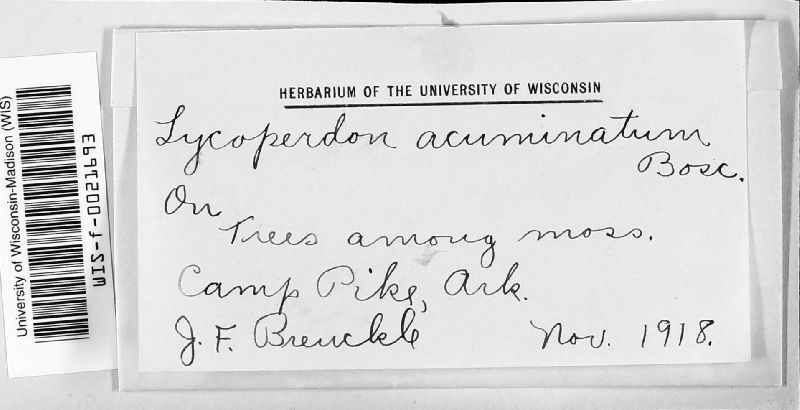 University of Wisconsin-Madison (WIS)
WIS-f-0021693
HERBARIUM OF THE UNIVERSITY OF WISCONSIN
Lycoperdon acuminatum
Bosc.
On
Trees among moss.
Camp Pike, Ark.
J. F. Brenckle Nov. 1918.